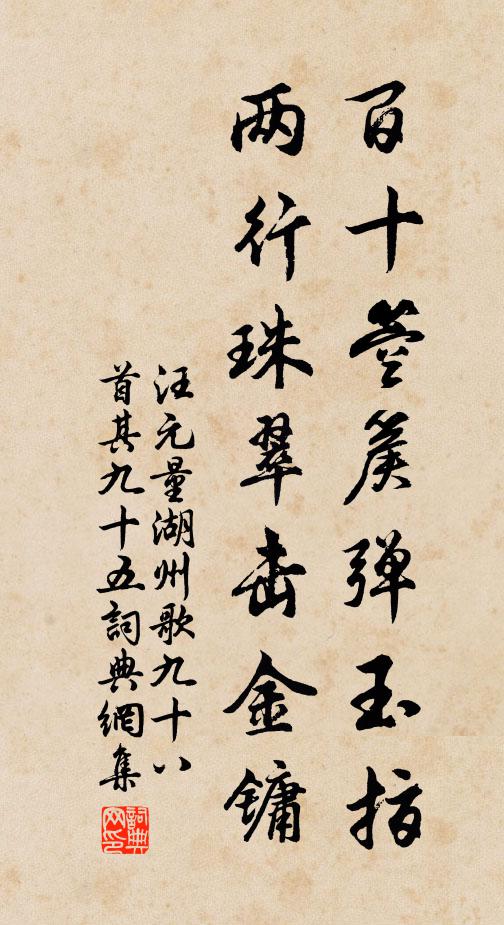 百十箜篌弹玉指
两行珠翠击金镛
汪元量湖州歌九十八
首其九十五詞典網集
詞典
网印